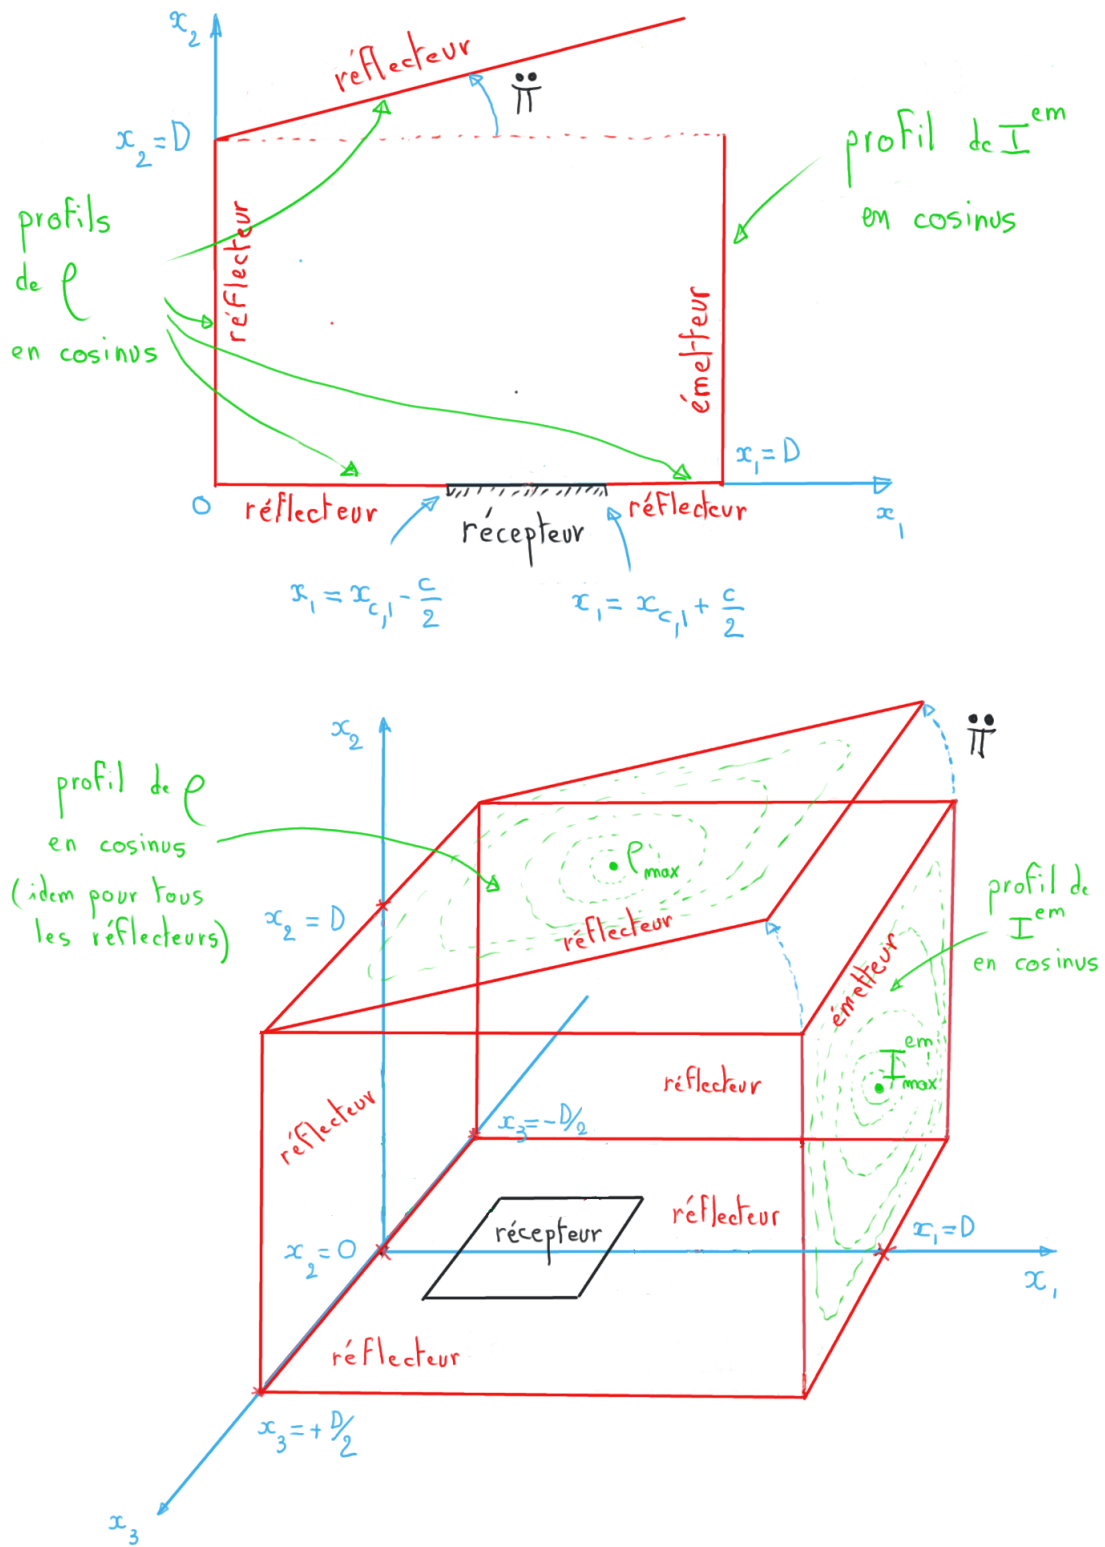 x₂
réflecteur
π̈
x₂ = D
profil de I^em
en cosinus
profils
de ρ
en cosinus
réflecteur
émetteur
x₁ = D
0
réflecteur
récepteur
réflecteur
x₁
x₁ = x_{c,1} - c/2
x₁ = x_{c,1} + c/2
x₂
π̈
profil de ρ
en cosinus
(idem pour tous
les réflecteurs)
ρ_max
x₂ = D
réflecteur
émetteur
profil de
I^em
en cosinus
I^em_max
réflecteur
réflecteur
x₃ = -D/2
récepteur
réflecteur
x₂ = 0
x₁ = D
x₁
réflecteur
x₃ = +D/2
x₃